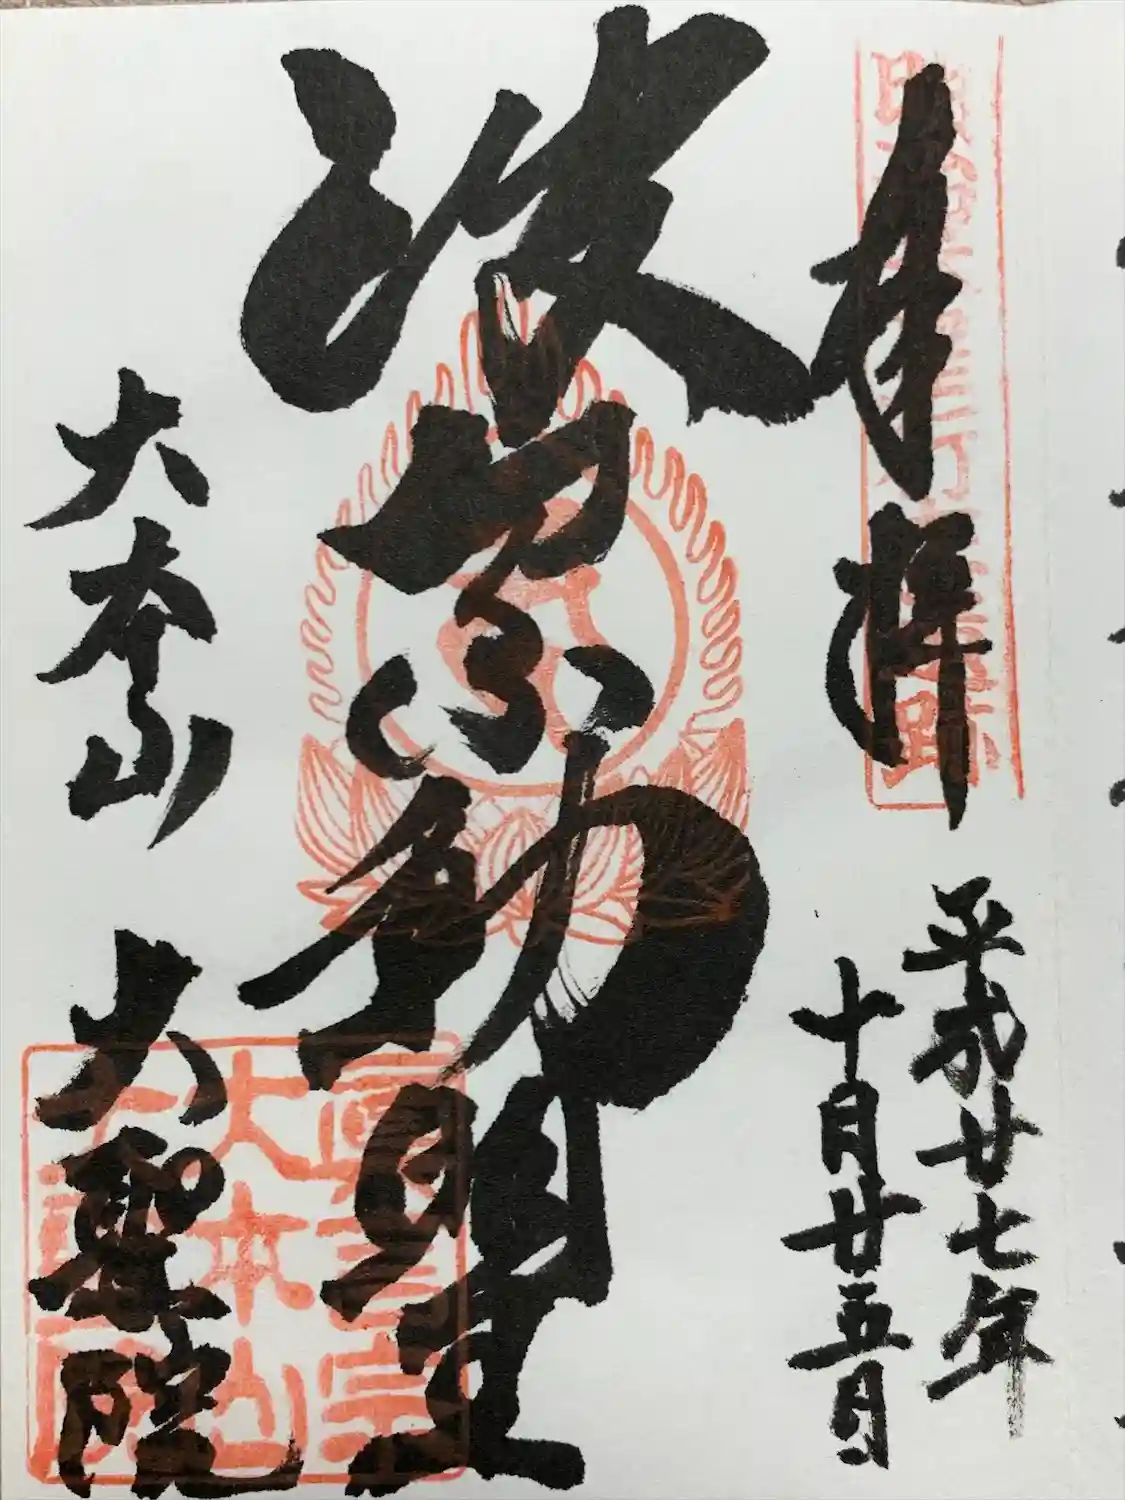 奉拝
平成廿七年
十月廿五日
波切不動明王
大本山
大聖院
眞言宗
大本山
大聖院